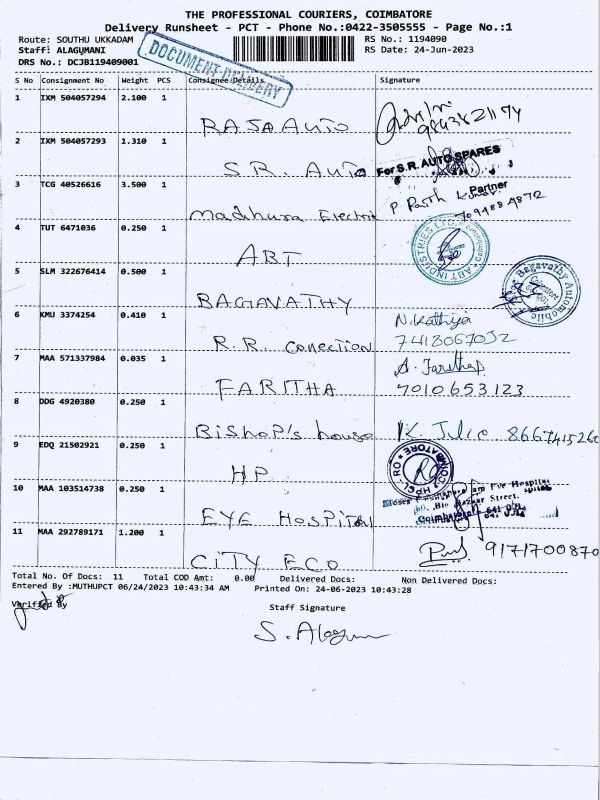 THE PROFESSIONAL COURIERS, COIMBATORE
Delivery Runsheet - PCT - Phone No.:0422-3505555 - Page No.:1
Route: SOUTHU UKKADAM RS No.: 1194090
Staff: ALAGUMANI RS Date: 24-Jun-2023
DRS No.: DCJB119409001
DOCUMENT DELIVERY
S No Consignment No Weight PCS Consignee Details Signature
1 IXM 504057294 2.100 1 RAJA AUTO 9843821174
2 IXM 504057293 1.310 1 S.R. Auto For S.R. AUTO SPARES
Partner
3 TCG 40526616 3.500 1 Madhura Electric P
4 TUT 6471036 0.250 1 ABT ABT INDUSTRIES LTD
5 SLM 322676414 0.500 1 BAGAVATHY Bagavathy Automobile
6 KMU 3374254 0.410 1 R.R. Conection N. Kathija
7418067052
7 MAA 571337984 0.035 1 FARITHA A.
7010653123
8 DDG 4920380 0.250 1 Bishop's house K. Julie 8667415260
9 EDQ 21502921 0.250 1 HP HPCL-RO COIMBATORE
10 MAA 103514738 0.250 1 EYE HOSPITAL Eye Hospital
Bazaar Street,
Coimbatore - 641 001.
11 MAA 292789171 1.200 1 CITY ECO 9171700870
Total No. Of Docs: 11 Total COD Amt: 0.00 Delivered Docs: Non Delivered Docs:
Entered By :MUTHUPCT 06/24/2023 10:43:34 AM Printed On: 24-06-2023 10:43:28
Verified By Staff Signature